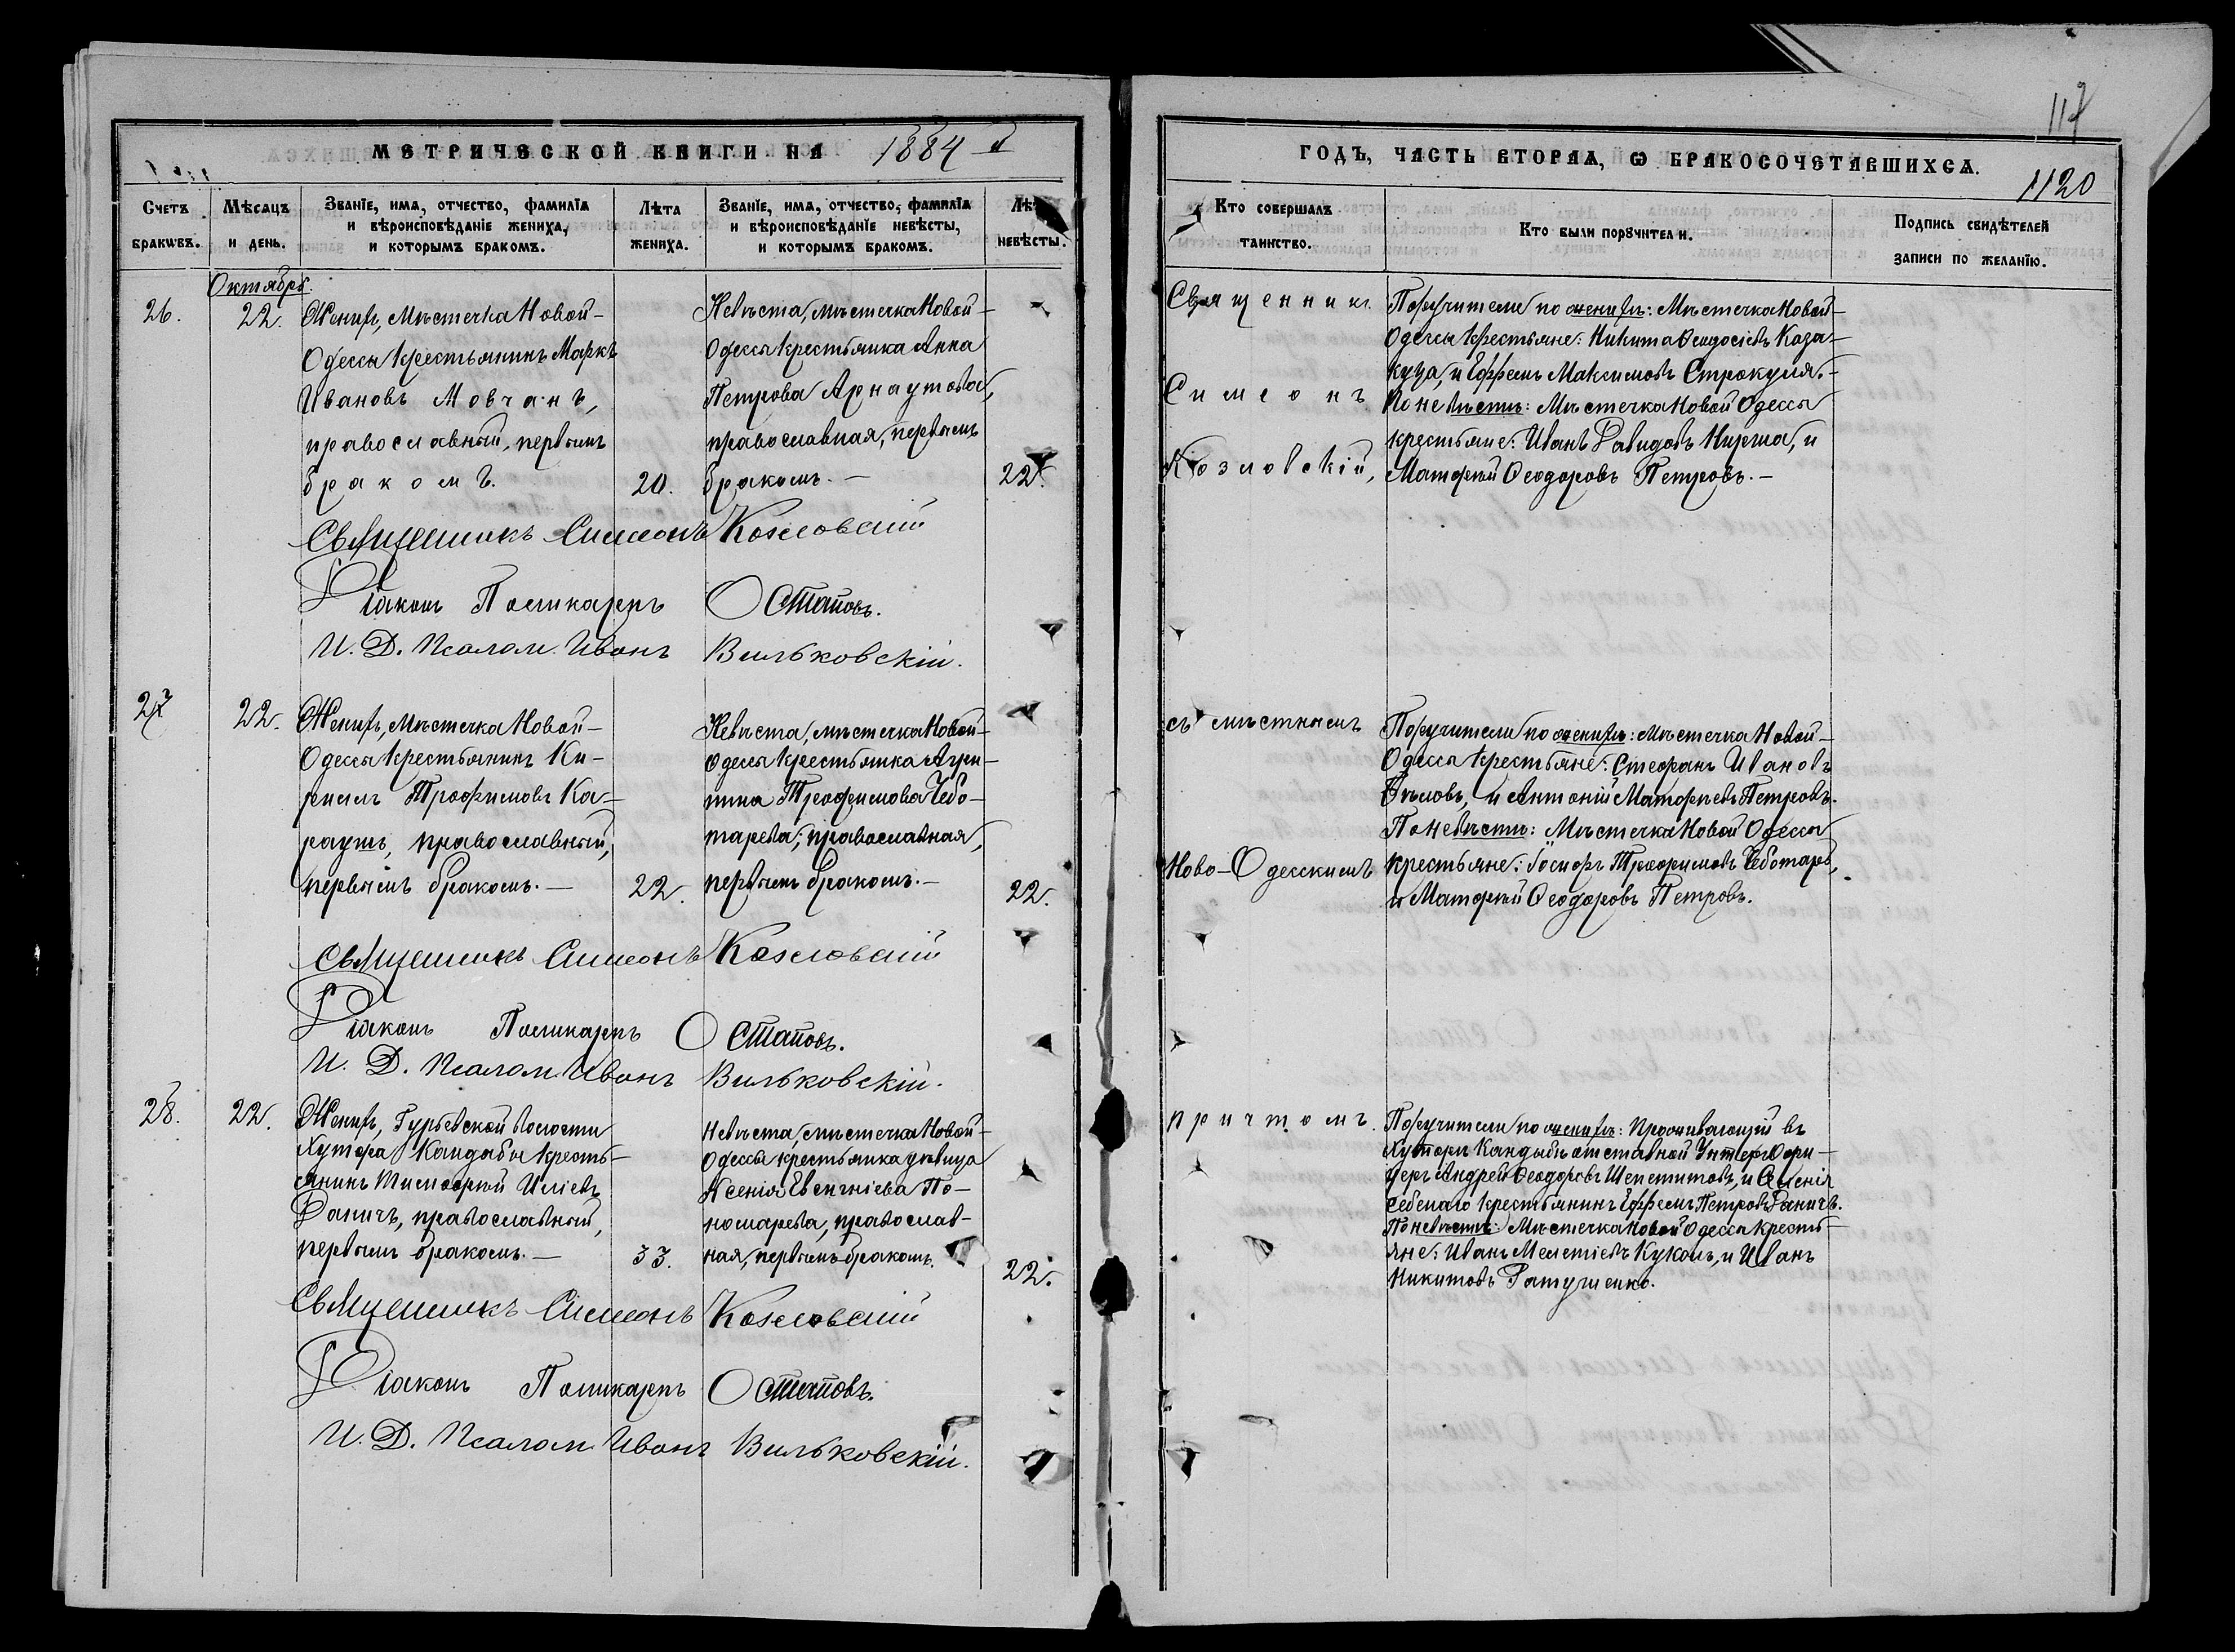 МЕТРИЧЕСКОЙ КНИГИ НА 1884 й
Счетъ браковъ.
Мѣсяцъ и день.
Званіе, имя, отчество, фамилія и вѣроисповѣданіе жениха, и которымъ бракомъ.
Лѣта жениха.
Званіе, имя, отчество, фамилія и вѣроисповѣданіе невѣсты, и которымъ бракомъ.
невѣсты.
Октябрь.
26.
22.
Женихъ, Мѣстечка Новой-
Одессы крестьянинъ Маркъ
Ивановъ Мовчанъ,
православный, первымъ
бракомъ.
20.
Невѣста, мѣстечка Новой-
Одессы крестьянка Анна
Петрова Арнаутова,
православная, первымъ
бракомъ.-
22.
Священникъ Симеонъ Козловскій
Діаконъ Поликарпъ Остаповъ.
И. Д. Псалом. Иванъ Вильковскій.
27
22.
Женихъ, Мѣстечка Новой-
Одессы крестьянинъ Ки-
риллъ Трофимовъ Ка-
раушъ, православный,
первымъ бракомъ.-
22.
Невѣста, мѣстечка Новой-
Одессы крестьянка Агри-
пина Трофимова Чебо-
тарева, православная,
первымъ бракомъ.-
22.
Священникъ Симеонъ Козловскій
Діаконъ Поликарпъ Остаповъ.
И. Д. Псалом. Иванъ Вильковскій.
28.
22.
Женихъ, Гурьевской волости
Хутора Кандыбы кресть-
янинъ Тимофей Иліевъ
Даничъ, православный,
первымъ бракомъ.-
33.
Невѣста, мѣстечка Новой-
Одессы крестьянка дѣвица
Ксенія Евсигніева По-
номарева, православ-
ная, первымъ бракомъ.
22.
Священникъ Симеонъ Козловскій
Діаконъ Поликарпъ Остаповъ.
И. Д. Псалом. Иванъ Вильковскій.
117
ГОДЪ, ЧАСТЬ ВТОРАЯ, Ѡ БРАКОСОЧЕТАВШИХСЯ.
1120
Кто совершалъ таинство.
Кто были поручители.
Подпись свидѣтелей записи по желанію.
Священникъ
Симеонъ
Козловскій,
Поручители по женихѣ: Мѣстечка Новой-
Одессы крестьяне: Никита Ѳеодосіевъ Каза-
куца, и Ефремъ Максимовъ Строкуля.-
По невѣстѣ: Мѣстечка Новой Одессы
крестьяне: Иванъ Давидовъ Ниржа, и
Матфей Ѳеодоровъ Петровъ.-
съ мѣстнымъ
Ново-Одесскимъ
Поручители по женихѣ: Мѣстечка Новой-
Одессы крестьяне: Стефанъ Ивановъ
Бѣловъ, и Антоній Матфѣевъ Петровъ.
По невѣстѣ: Мѣстечка Новой Одессы
крестьяне: Іосифъ Трофимовъ Чеботарь,
и Матфей Ѳеодоровъ Петровъ.
причтомъ.
Поручители по женихѣ: Проживающій въ
Хуторѣ Кандыбѣ отставной Унтеръ-Офи-
церъ Андрей Ѳеодоровъ Шепетитовъ, и
крестьянинъ Ефремъ Петровъ Даничъ.
По невѣстѣ: Мѣстечка Новой Одессы кресть-
яне: Иванъ Мелетіевъ Куколь, и Иванъ
Никитовъ Ратушенко.